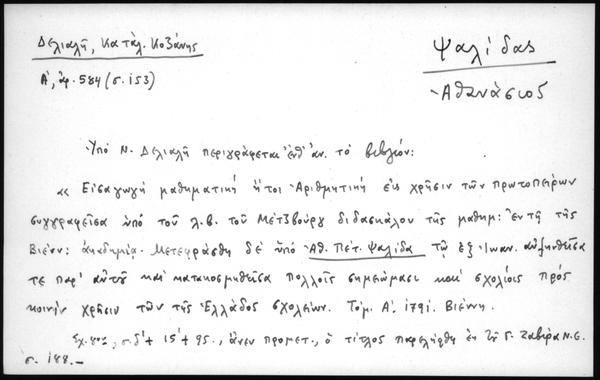 Δελιαλῆ, Κατάλ. Κοζάνης
Ψαλίδας
Α', ἀρ. 584 (σ. 153)
Ἀθανάσιος
Ὑπὸ Ν. Δελιαλῆ περιγράφεται ἐνθ' ἀν. τὸ βιβλίον:
« Εἰσαγωγὴ μαθηματικὴ ἤτοι Ἀριθμητικὴ εἰς χρῆσιν τῶν πρωτοπείρων
συγγραφεῖσα ὑπὸ τοῦ λ.β. τοῦ Μέτζβουργ διδασκάλου τῆς μαθημ: ἐν τῇ τῆς
Βιένν: ἀκαδημίᾳ. Μετεφράσθη δὲ ὑπὸ Ἀθ. Πέτ. Ψαλίδα τῷ ἐξ Ἰωαν. αὐξηνθεῖσα
τε παρ' αὐτοῦ καὶ κατακοσμηθεῖσα πολλοῖς σημειώμασι καὶ σχολίοις πρὸς
κοινὴν χρῆσιν τῶν τῆς Ἑλλάδος σχολείων. Τόμ. Α'. 1791. Βιέννῃ.
Σχ. 8ον, σ. δ'+ 15'+ 95., ἄνευ προμετ., ὁ τίτλος παρελήφθη ἐκ τῆς Γ. Ζαβίρα Ν.Ε.
σ. 188.-